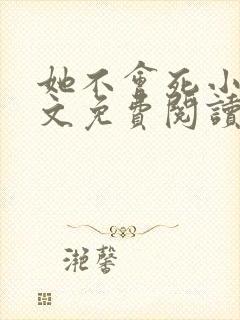 她不會死小
文免費閱讀
滟馨